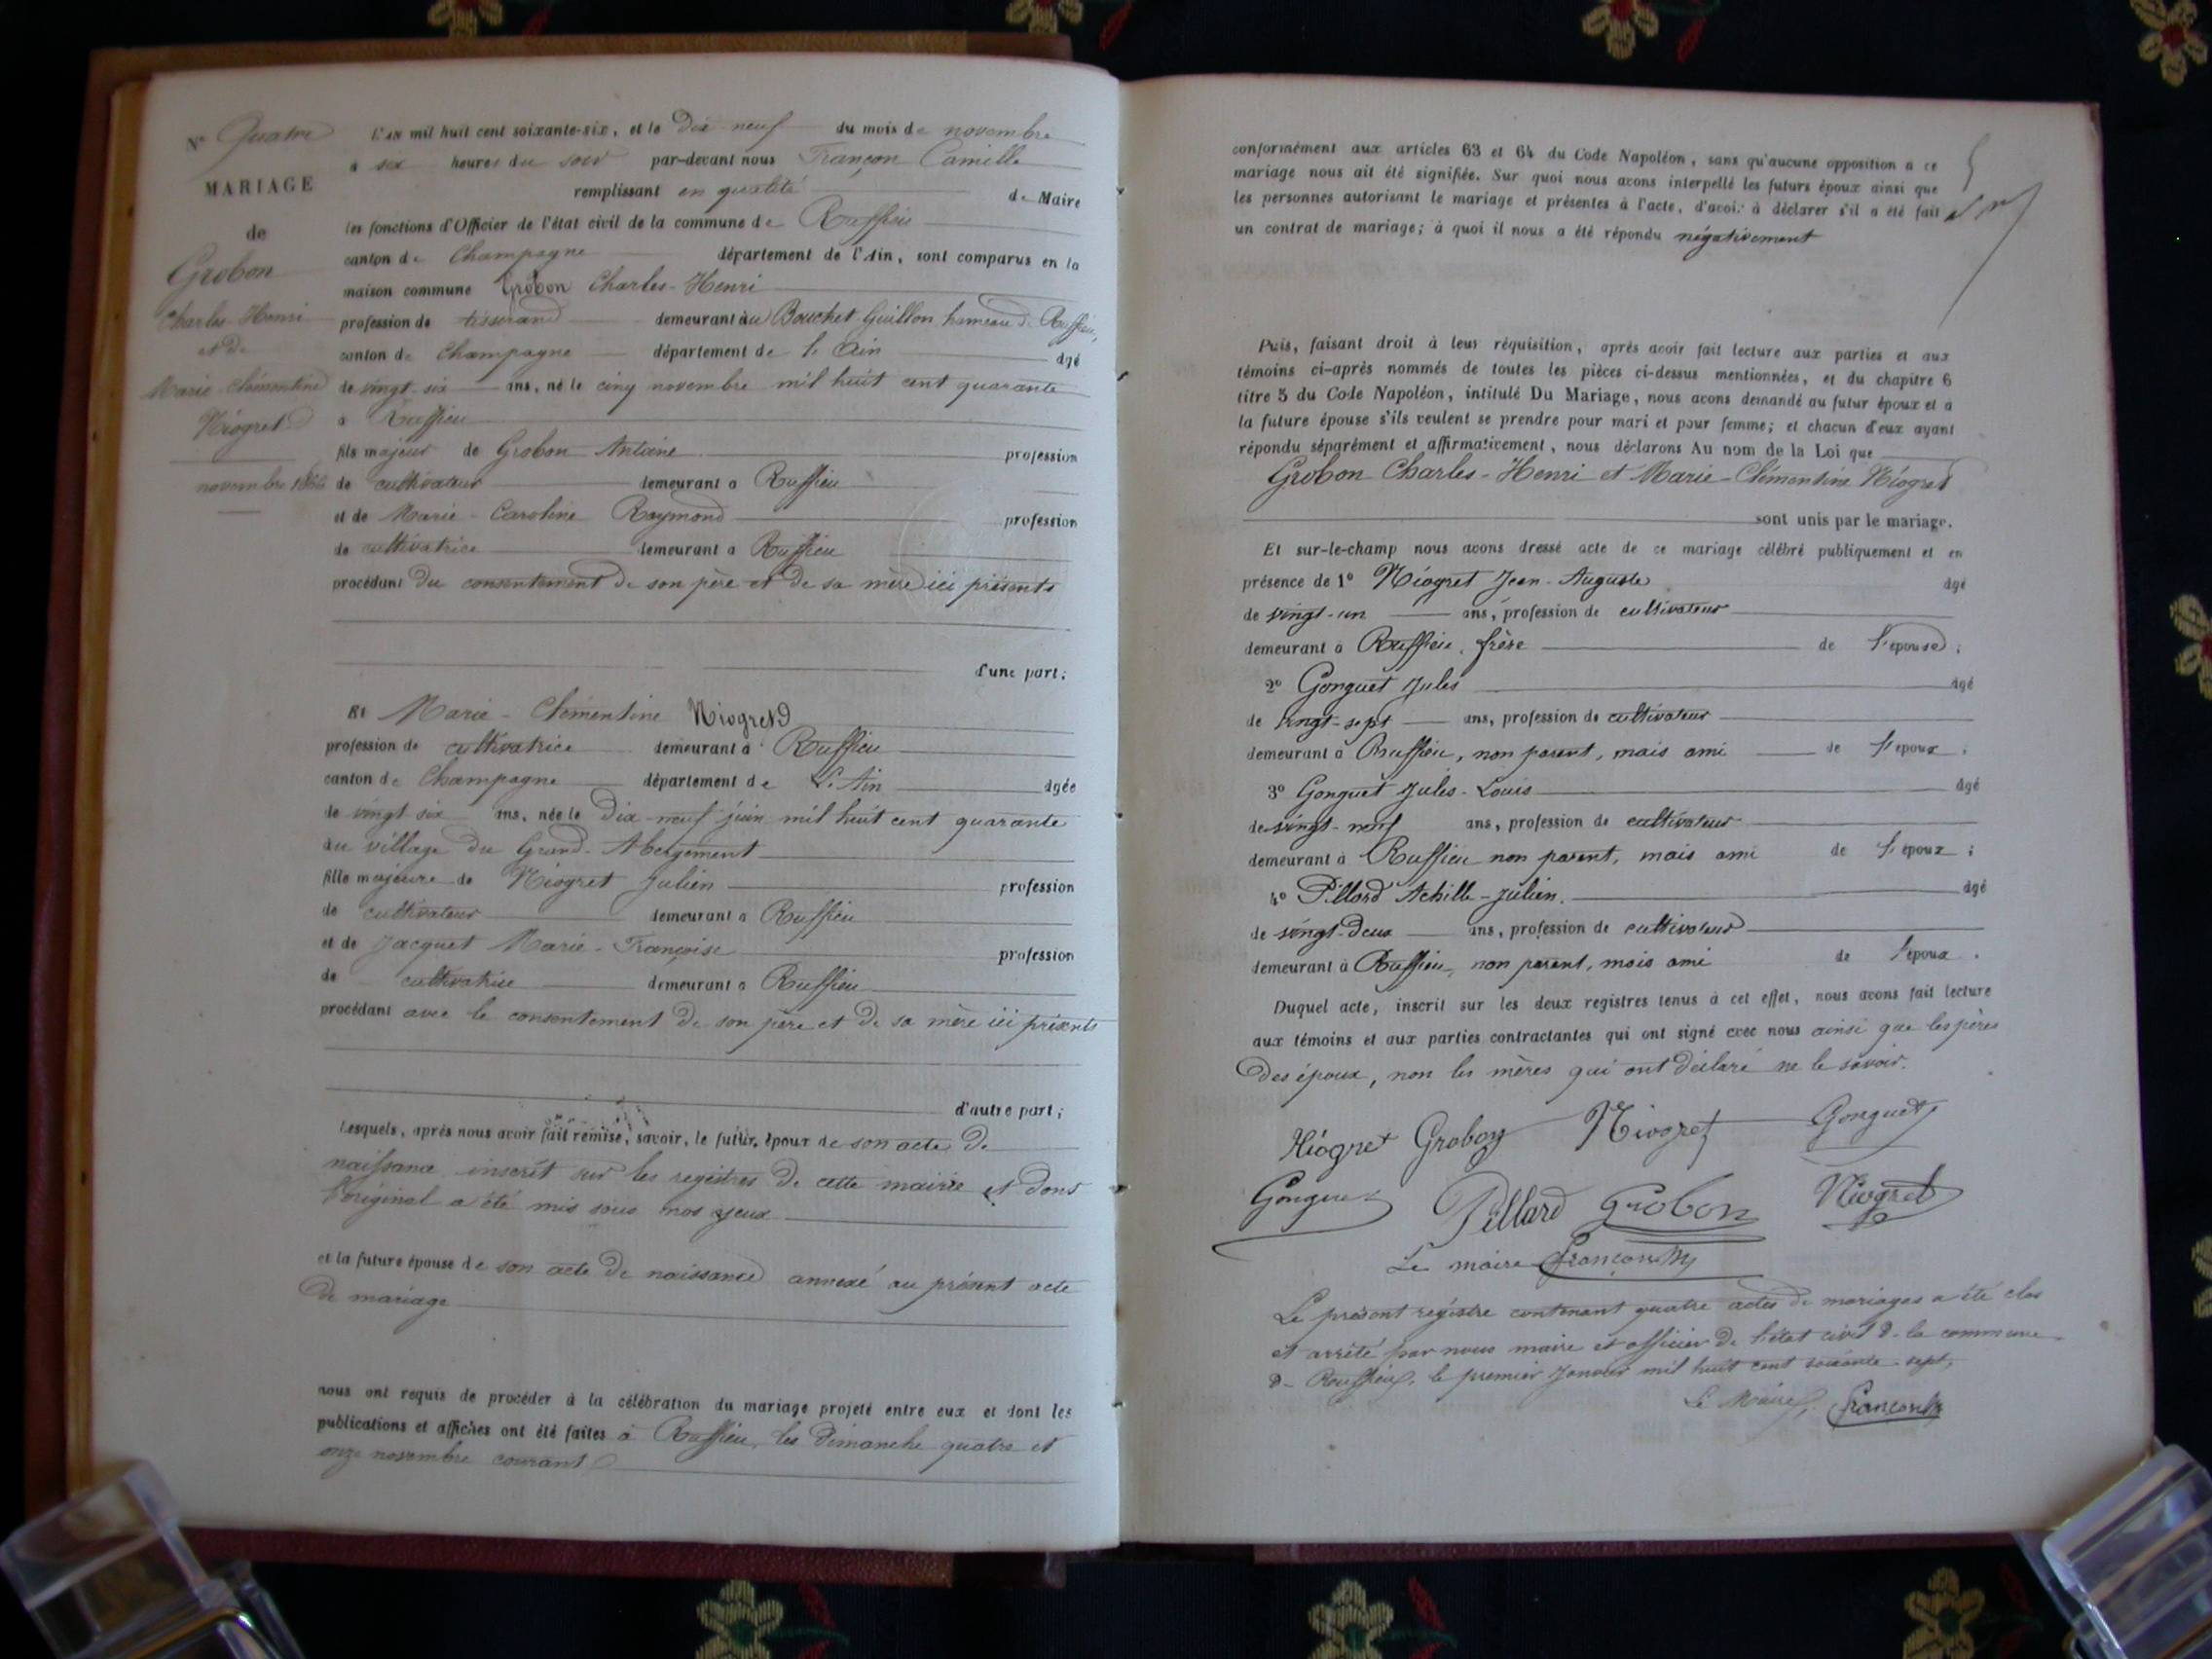 N° Quatre
MARIAGE
de
Grobon
Charles-Henri
et de
Marie Clémentine
Niogret
novembre 1866
L'AN mil huit cent soixante-six, et le Dix neuf du mois de novembre
à six heures du soir par-devant nous Françon Camille
remplissant en qualité de Maire
les fonctions d'Officier de l'état civil de la commune de Ruffieu
canton de Champagne département de l'Ain, sont comparus en la
maison commune Grobon Charles-Henri
profession de tisserand demeurant au Bouchet Guillon hameau de Ruffieu,
canton de Champagne département de l'Ain âgé
de vingt-six ans, né le cinq novembre mil huit cent quarante
à Ruffieu
fils majeur de Grobon Antoine profession
de cultivateur demeurant à Ruffieu
et de Marie-Caroline Raymond profession
de cultivatrice demeurant à Ruffieu
procédant du consentement de son père et de sa mère ici présents
d'une part;
Et Marie-Clémentine Niogret
profession de cultivatrice demeurant à Ruffieu
canton de Champagne département de L'Ain âgée
de vingt six ans, née le Dix neuf juin mil huit cent quarante
au village du Grand-Abergement
fille majeure de Niogret Julien profession
de cultivateur demeurant à Ruffieu
et de Jacquet Marie-Françoise profession
de cultivatrice demeurant à Ruffieu
procédant avec le consentement de son père et de sa mère ici présents
d'autre part;
Lesquels, après nous avoir fait remise, savoir, le futur époux de son acte de
naissance inscrit sur les registres de cette mairie et dont
l'original a été mis sous nos yeux
et la future épouse de son acte de naissance annexé au présent acte
de mariage
nous ont requis de procéder à la célébration du mariage projeté entre eux et dont les
publications et affiches ont été faites à Ruffieu, les dimanche quatre et
onze novembre courant
conformément aux articles 63 et 64 du Code Napoléon, sans qu'aucune opposition à ce
mariage nous ait été signifiée. Sur quoi nous avons interpellé les futurs époux ainsi que
les personnes autorisant le mariage et présentes à l'acte, d'avoir à déclarer s'il a été fait
un contrat de mariage; à quoi il nous a été répondu négativement
Puis, faisant droit à leur réquisition, après avoir fait lecture aux parties et aux
témoins ci-après nommés de toutes les pièces ci-dessus mentionnées, et du chapitre 6
titre 5 du Code Napoléon, intitulé Du Mariage, nous avons demandé au futur époux et à
la future épouse s'ils veulent se prendre pour mari et pour femme; et chacun d'eux ayant
répondu séparément et affirmativement, nous déclarons Au nom de la Loi que
Grobon Charles-Henri et Marie-Clémentine Niogret
sont unis par le mariage.
Et sur-le-champ nous avons dressé acte de ce mariage célébré publiquement et en
présence de 1° Niogret Jean-Auguste âgé
de vingt-un ans, profession de cultivateur
demeurant à Ruffieu, frère de l'épouse;
2° Gonguet Jules âgé
de vingt-sept ans, profession de cultivateur
demeurant à Ruffieu, non parent, mais ami de l'époux;
3° Gonguet Jules-Louis âgé
de vingt-neuf ans, profession de cultivateur
demeurant à Ruffieu non parent, mais ami de l'époux;
4° Pillard Achille-Julien. âgé
de vingt-deux ans, profession de cultivateur
demeurant à Ruffieu, non parent, mais ami de l'époux.
Duquel acte, inscrit sur les deux registres tenus à cet effet, nous avons fait lecture
aux témoins et aux parties contractantes qui ont signé avec nous ainsi que les pères
des époux, non les mères qui ont déclaré ne le savoir.
Niogret Grobon Niogret Gonguet
Gonguet Pillard Grobon Niogret
Le maire Françon
Le présent registre contenant quatre actes de mariages a été clos
et arrêté par nous maire et officier de l'état civil de la commune
de Ruffieu, le premier Janvier mil huit cent soixante-sept,
Le Maire, Françon